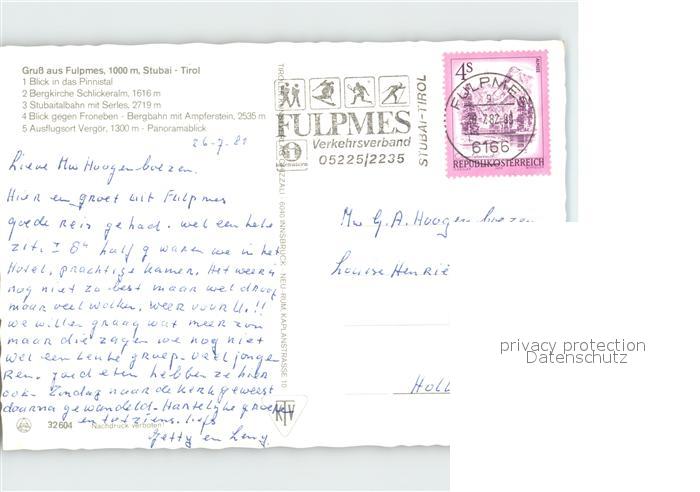 Gruß aus Fulpmes, 1000 m, Stubai - Tirol
1 Blick in das Pinnistal
2 Bergkirche Schlickeralm, 1616 m
3 Stubaitalbahn mit Serles, 2719 m
4 Blick gegen Froneben - Bergbahn mit Ampferstein, 2535 m
5 Ausflugsort Vergör, 1300 m - Panoramablick
26-7.81
Lieve Mw Hoogenboezem.
Hier en groet uit Fulpmes
goede reis gehad. wel een hele
zit. half 9 waren we in het
Hotel, prachtige kamer. Het weer is
nog niet zo best maar wel droog
maar veel wolken, weer voor U.!!
we willen graag wat meer zon
maar die zagen we nog niet
wel een leuke groep. veel jonge
Ren. goed eten hebben ze hier
ook. Zondag naar de kerk geweest
daarna gewandeld. Hartelijke groeten
en liefs
Jetty en Leny.
32604 Nachdruck verboten!
FULPMES
Verkehrsverband
05225/2235
STUBAI-TIROL
6040 INNSBRUCK - NEU-RUM, KAPLANSTRASSE 10
4S
REPUBLIK ÖSTERREICH
FULPMES
6166
Mw G.A. Hoogenboezem
Louise Henrië
HOLL
privacy protection
Datenschutz